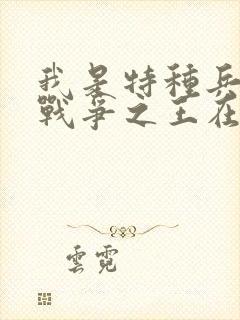 我是特種兵
戰爭之王在
雲霓